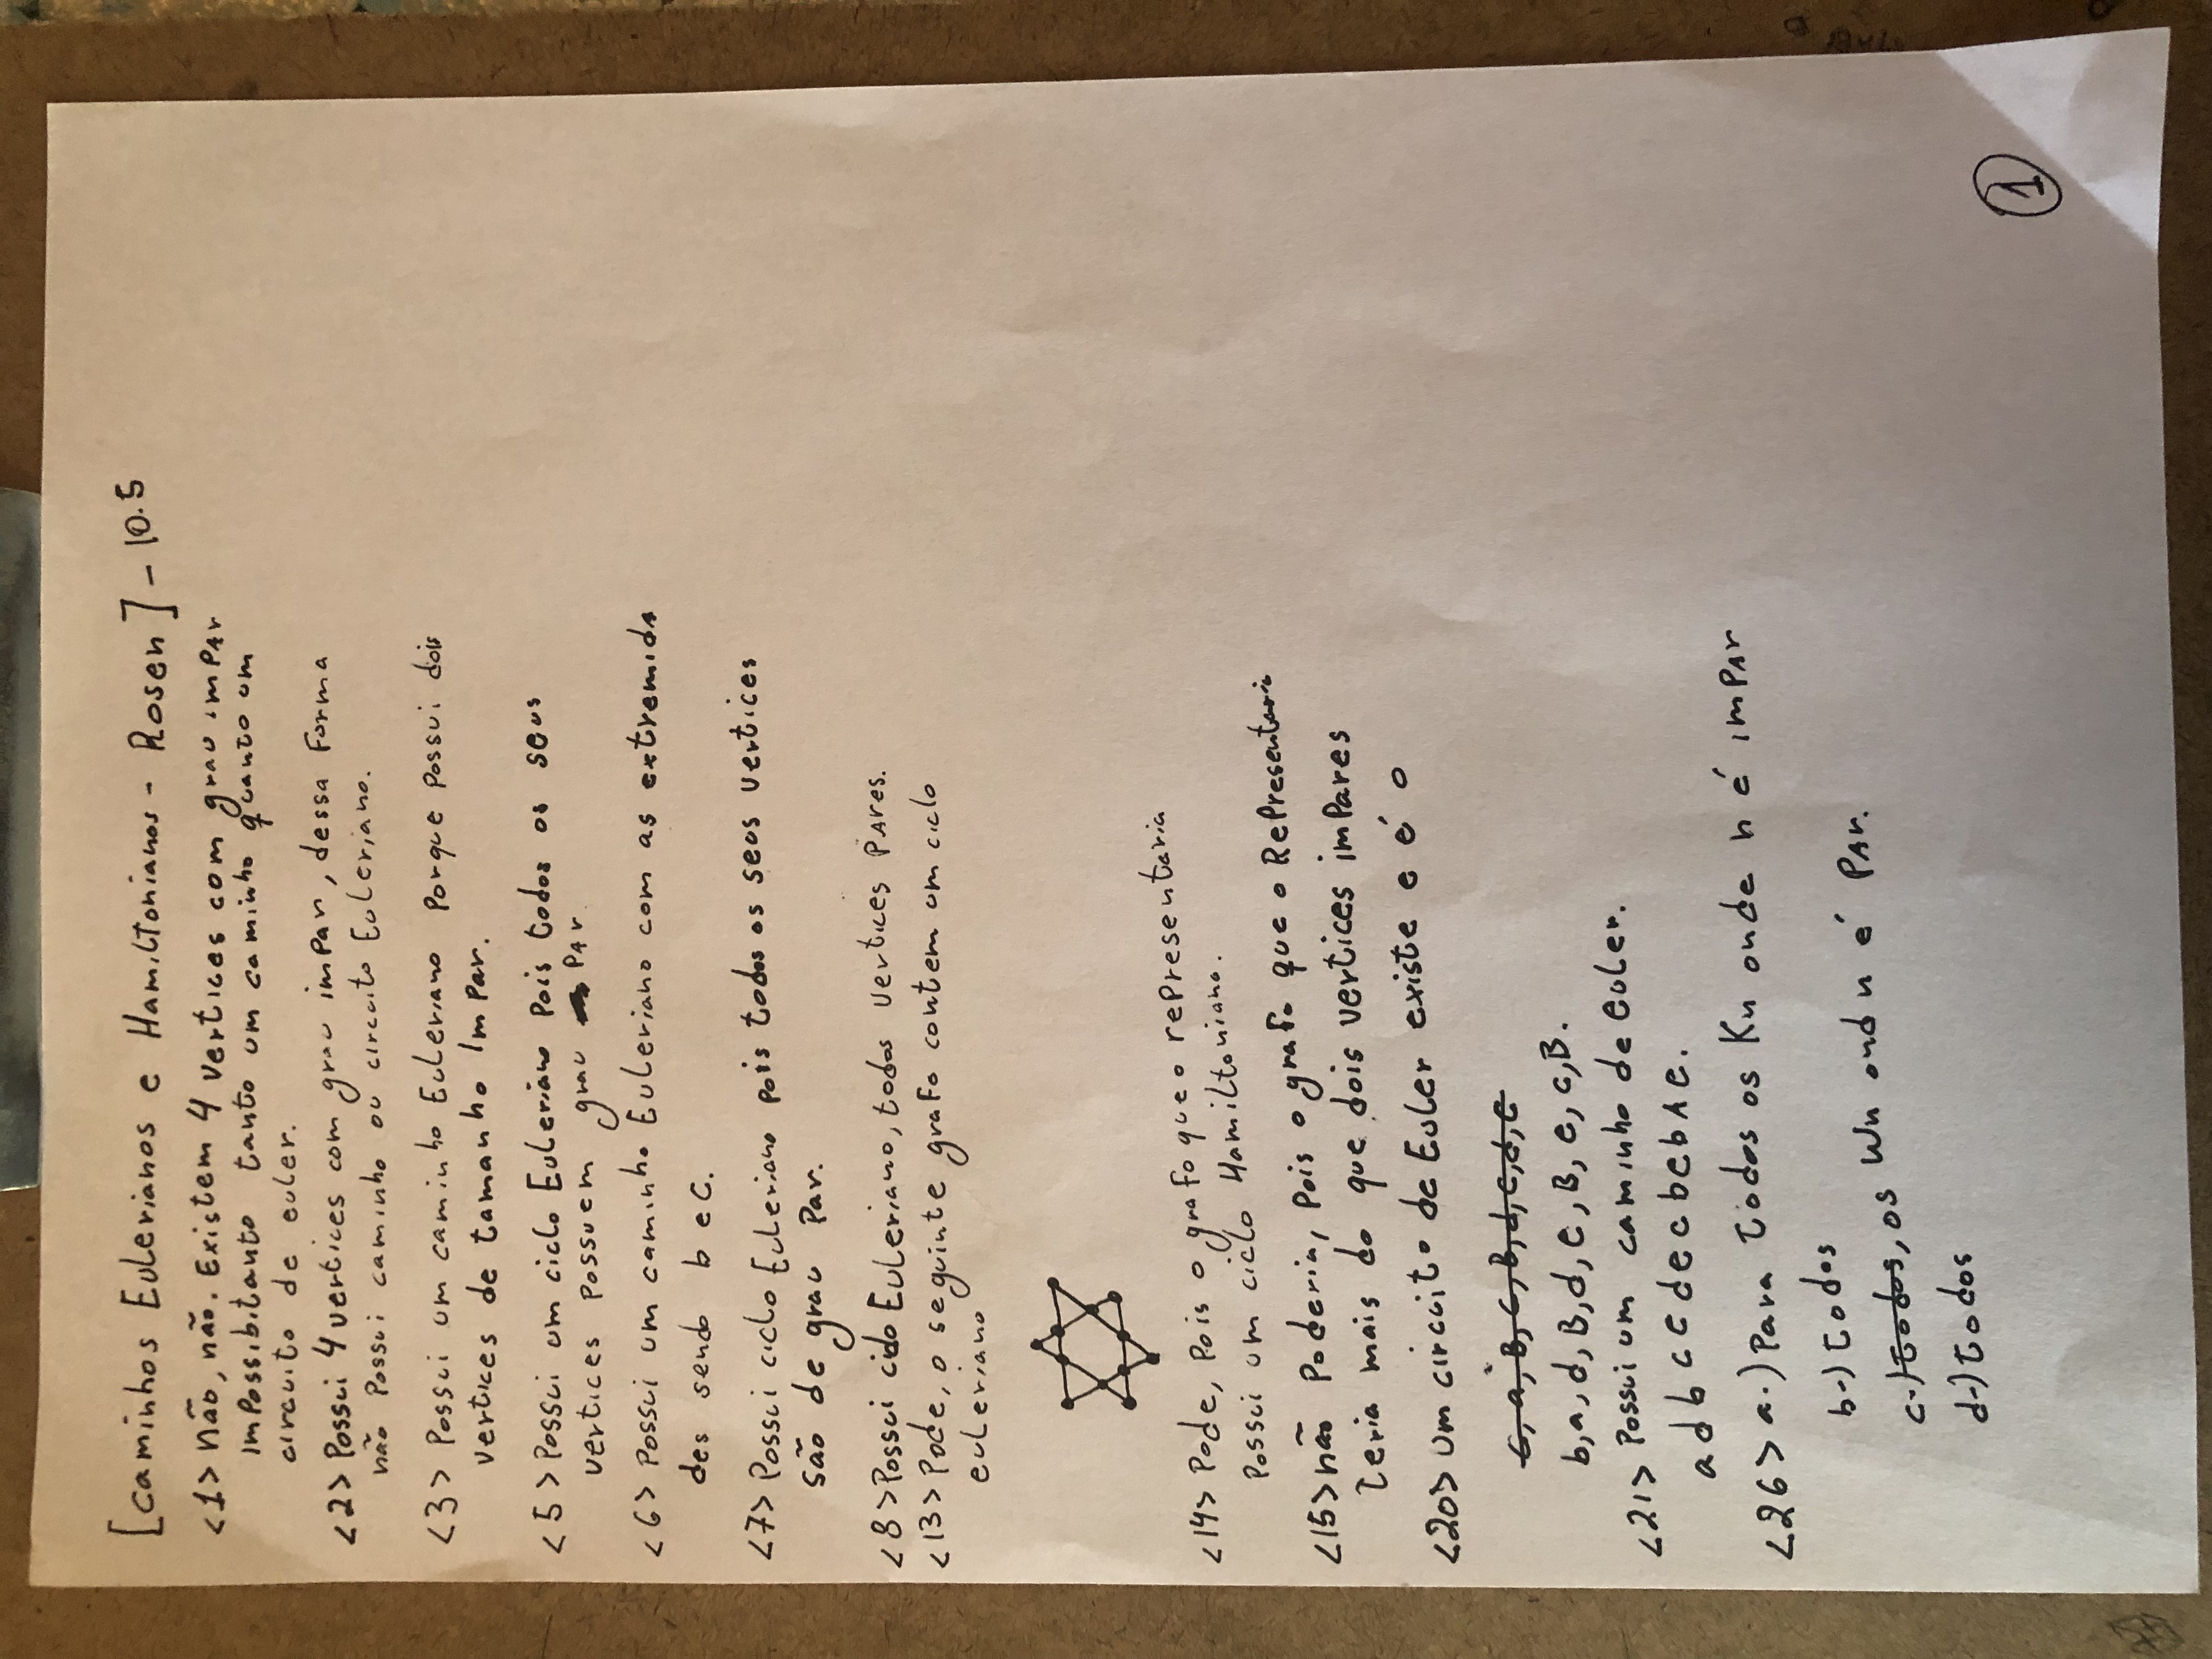 [Caminhos Eulerianos e Hamiltonianos - Rosen] - 10.5
<1> não, não. Existem 4 vertices com grau impar
impossibitanto tanto um caminho quanto um
circuito de euler.
<2> Possui 4 vertices com grau impar, dessa forma
não Possui caminho ou circuito Euleriano.
<3> Possui um caminho Euleriano porque possui dois
vertices de tamanho impar.
<5> Possui um ciclo Euleriano pois todos os seus
vertices possuem grau Par
<6> Possui um caminho Euleriano com as extremida
des sendo b e c.
<7> Possui ciclo Euleriano pois todos os seus vertices
são de grau Par.
<8> Possui ciclo Euleriano, todos vertices Pares.
<13> Pode, o seguinte grafo contem um ciclo
euleriano
<14> Pode, Pois o grafo que o representaria
Possui um ciclo Hamiltoniano.
<15> não Poderia, Pois o grafo que o Representaria
teria mais do que dois vertices impares
<20> Um circuito de Euler existe e é o
b, a, d, B, d, e, B, e, c, B.
<21> Possui um caminho de Euler.
<26> a-) Para todos os Kn onde n é impar
b-) todos
c-) todos, os Wn ond n é Par.
d-) todos
1